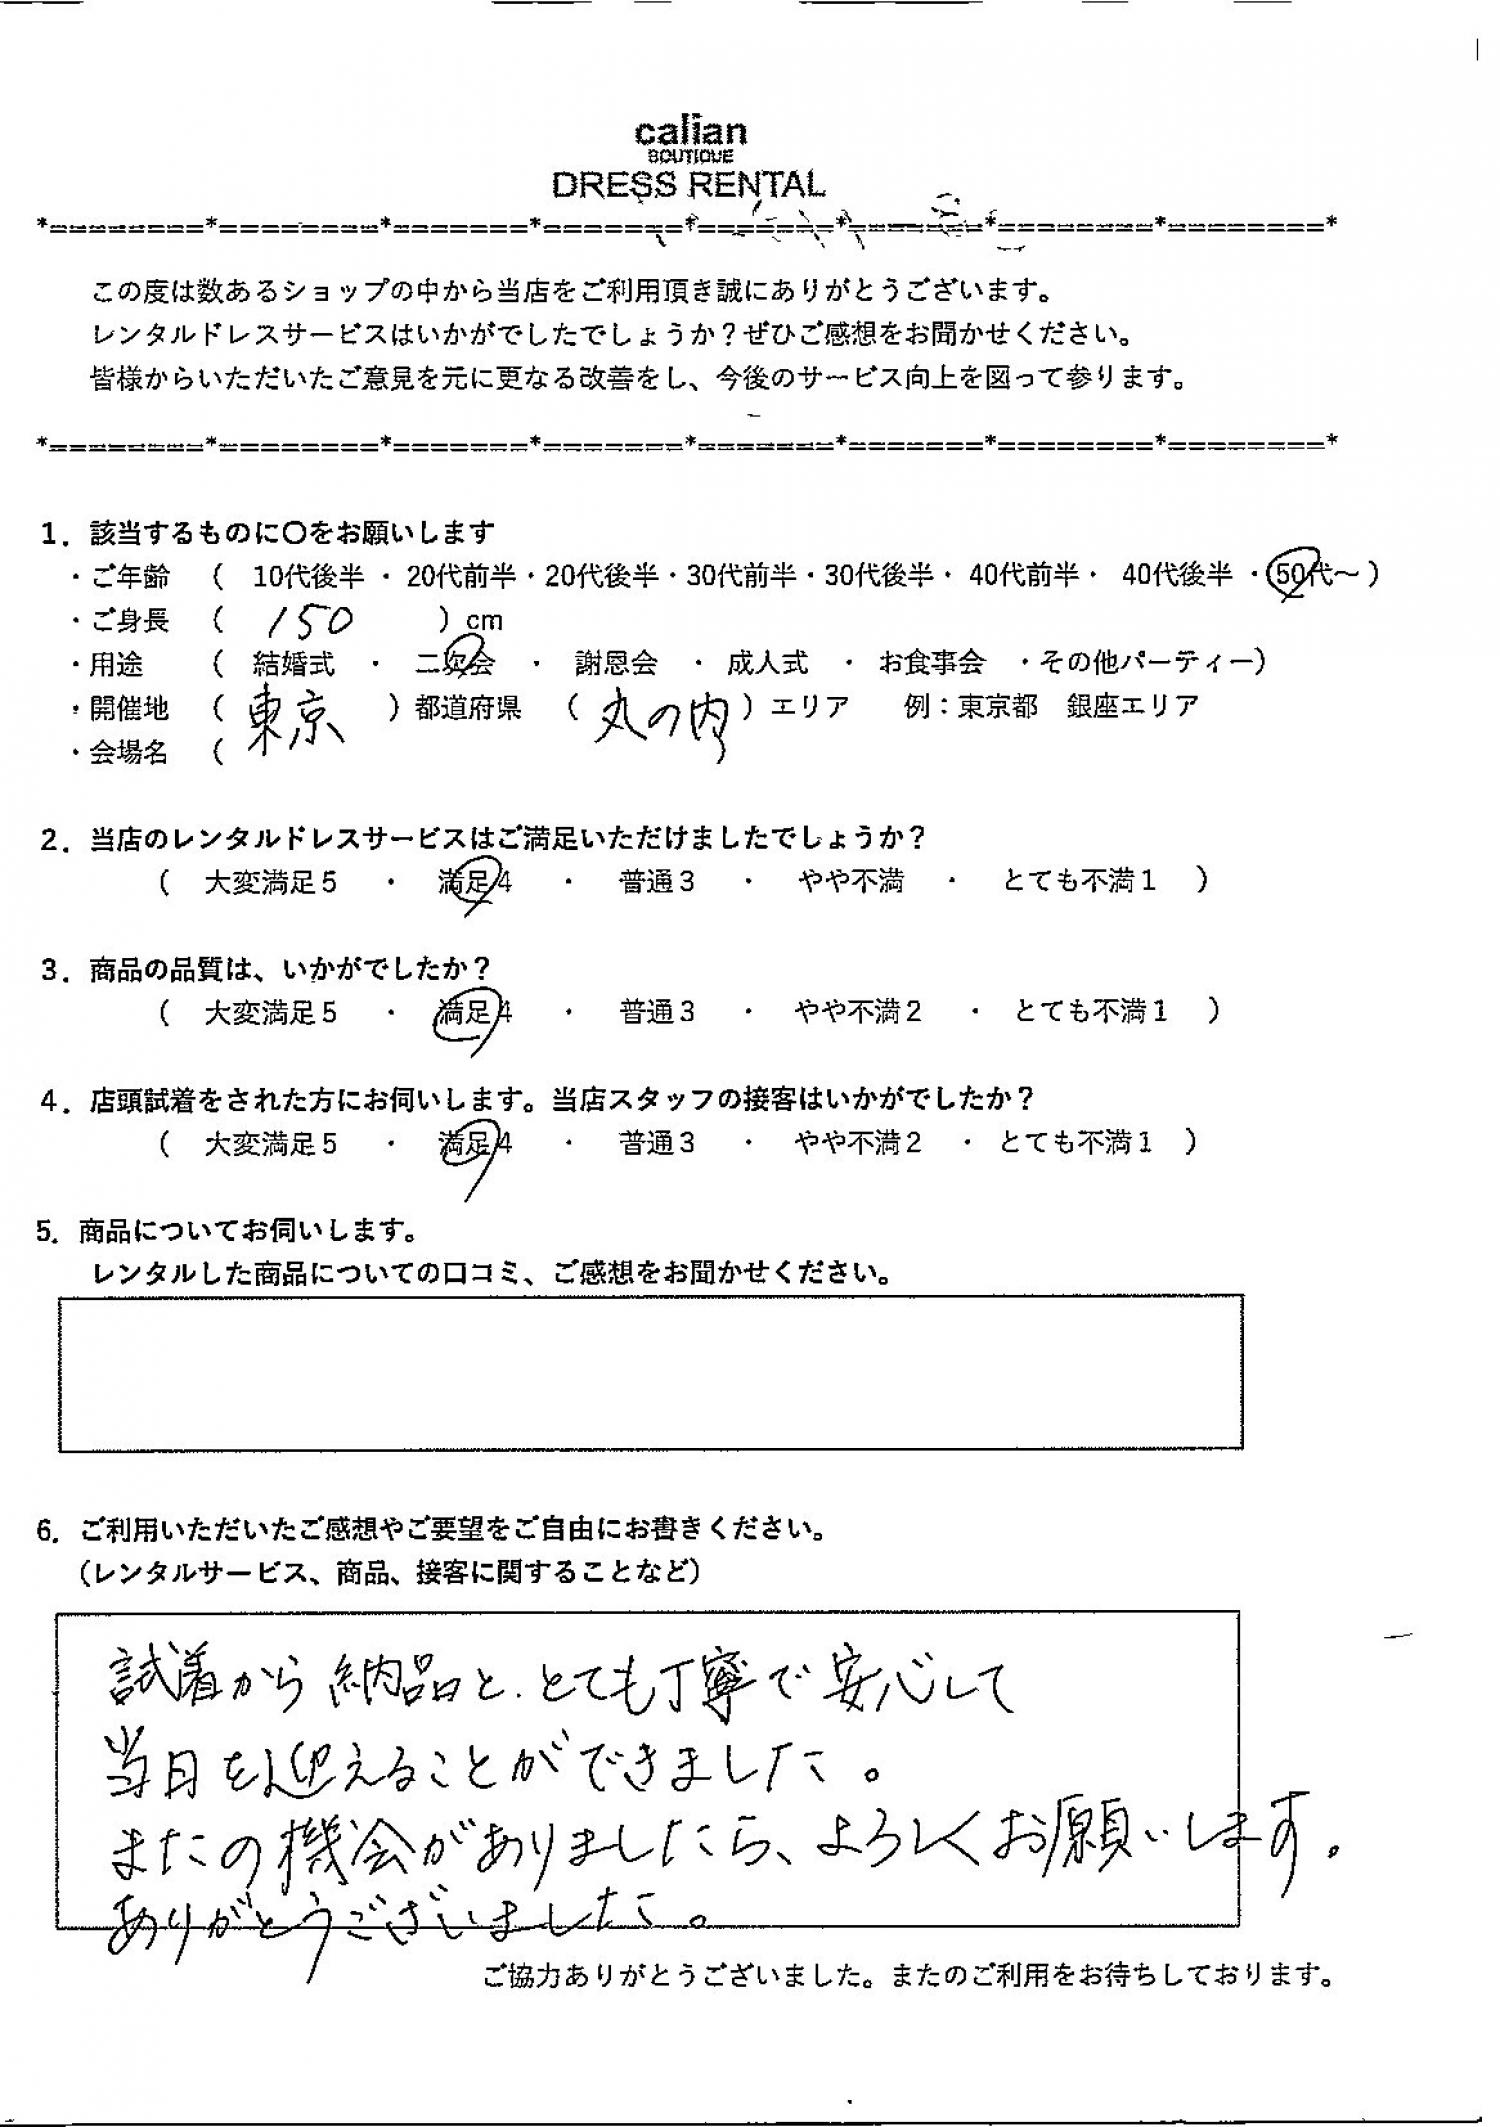 calian
BOUTIQUE
DRESS RENTAL
*========*========*=======*=======*=======*=======*========*========*
この度は数あるショップの中から当店をご利用頂き誠にありがとうございます。
レンタルドレスサービスはいかがでしたでしょうか？ぜひご感想をお聞かせください。
皆様からいただいたご意見を元に更なる改善をし、今後のサービス向上を図って参ります。
*========*========*=======*=======*=======*=======*========*========*
1．該当するものに〇をお願いします
・ご年齢 （ 10代後半 ・ 20代前半・20代後半・30代前半・30代後半・ 40代前半・ 40代後半 ・50代～）
・ご身長 （ 150 ）cm
・用途 （ 結婚式 ・ 二次会 ・ 謝恩会 ・ 成人式 ・ お食事会 ・その他パーティー）
・開催地 （ 東京 ）都道府県 （ 丸の内 ）エリア 例：東京都 銀座エリア
・会場名 （ ）
2．当店のレンタルドレスサービスはご満足いただけましたでしょうか？
（ 大変満足５ ・ 満足４ ・ 普通３ ・ やや不満 ・ とても不満１ ）
3．商品の品質は、いかがでしたか？
（ 大変満足５ ・ 満足４ ・ 普通３ ・ やや不満２ ・ とても不満１ ）
4．店頭試着をされた方にお伺いします。当店スタッフの接客はいかがでしたか？
（ 大変満足５ ・ 満足４ ・ 普通３ ・ やや不満２ ・ とても不満１ ）
5．商品についてお伺いします。
レンタルした商品についての口コミ、ご感想をお聞かせください。
6．ご利用いただいたご感想やご要望をご自由にお書きください。
（レンタルサービス、商品、接客に関することなど）
試着から納品と、とても丁寧で安心して
当日を迎えることができました。
またの機会がありましたら、よろしくお願いします。
ありがとうございました。
ご協力ありがとうございました。またのご利用をお待ちしております。